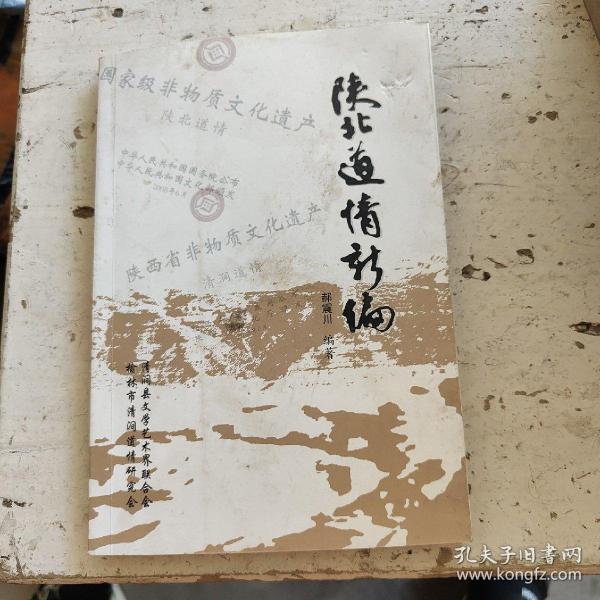 陕北道情新编
郝震川 编著
国家级非物质文化遗产
陕北道情
中华人民共和国国务院公布
中华人民共和国文化部颁发
陕西省非物质文化遗产
清涧道情
清涧县文学艺术界联合会
榆林市清涧道情研究会
孔夫子旧书网
www.kongfz.com